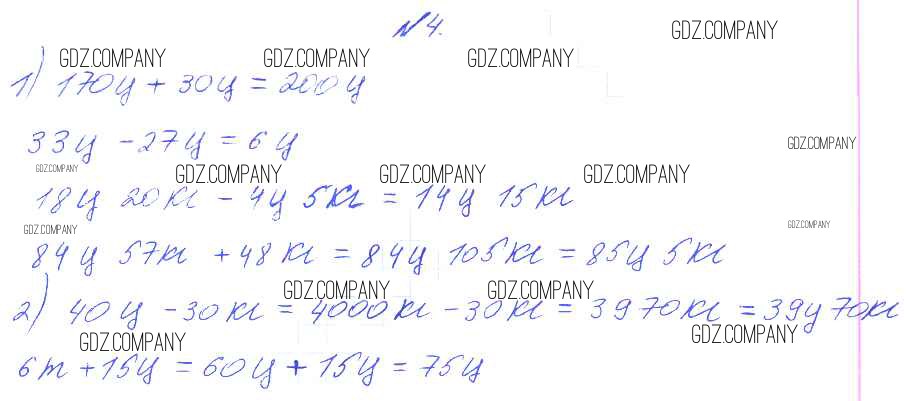 №4.
GDZ.COMPANY
GDZ.COMPANY GDZ.COMPANY GDZ.COMPANY
1) 170ц + 30ц = 200ц
33ц - 27ц = 6ц
GDZ.COMPANY
GDZ.COMPANY GDZ.COMPANY GDZ.COMPANY GDZ.COMPANY
18ц 20кг - 4ц 5кг = 14ц 15кг
GDZ.COMPANY GDZ.COMPANY
84ц 57кг + 48кг = 84ц 105кг = 85ц 5кг
GDZ.COMPANY GDZ.COMPANY
2) 40ц - 30кг = 4000кг - 30кг = 3970кг = 39ц 70кг
GDZ.COMPANY GDZ.COMPANY
6т + 15ц = 60ц + 15ц = 75ц